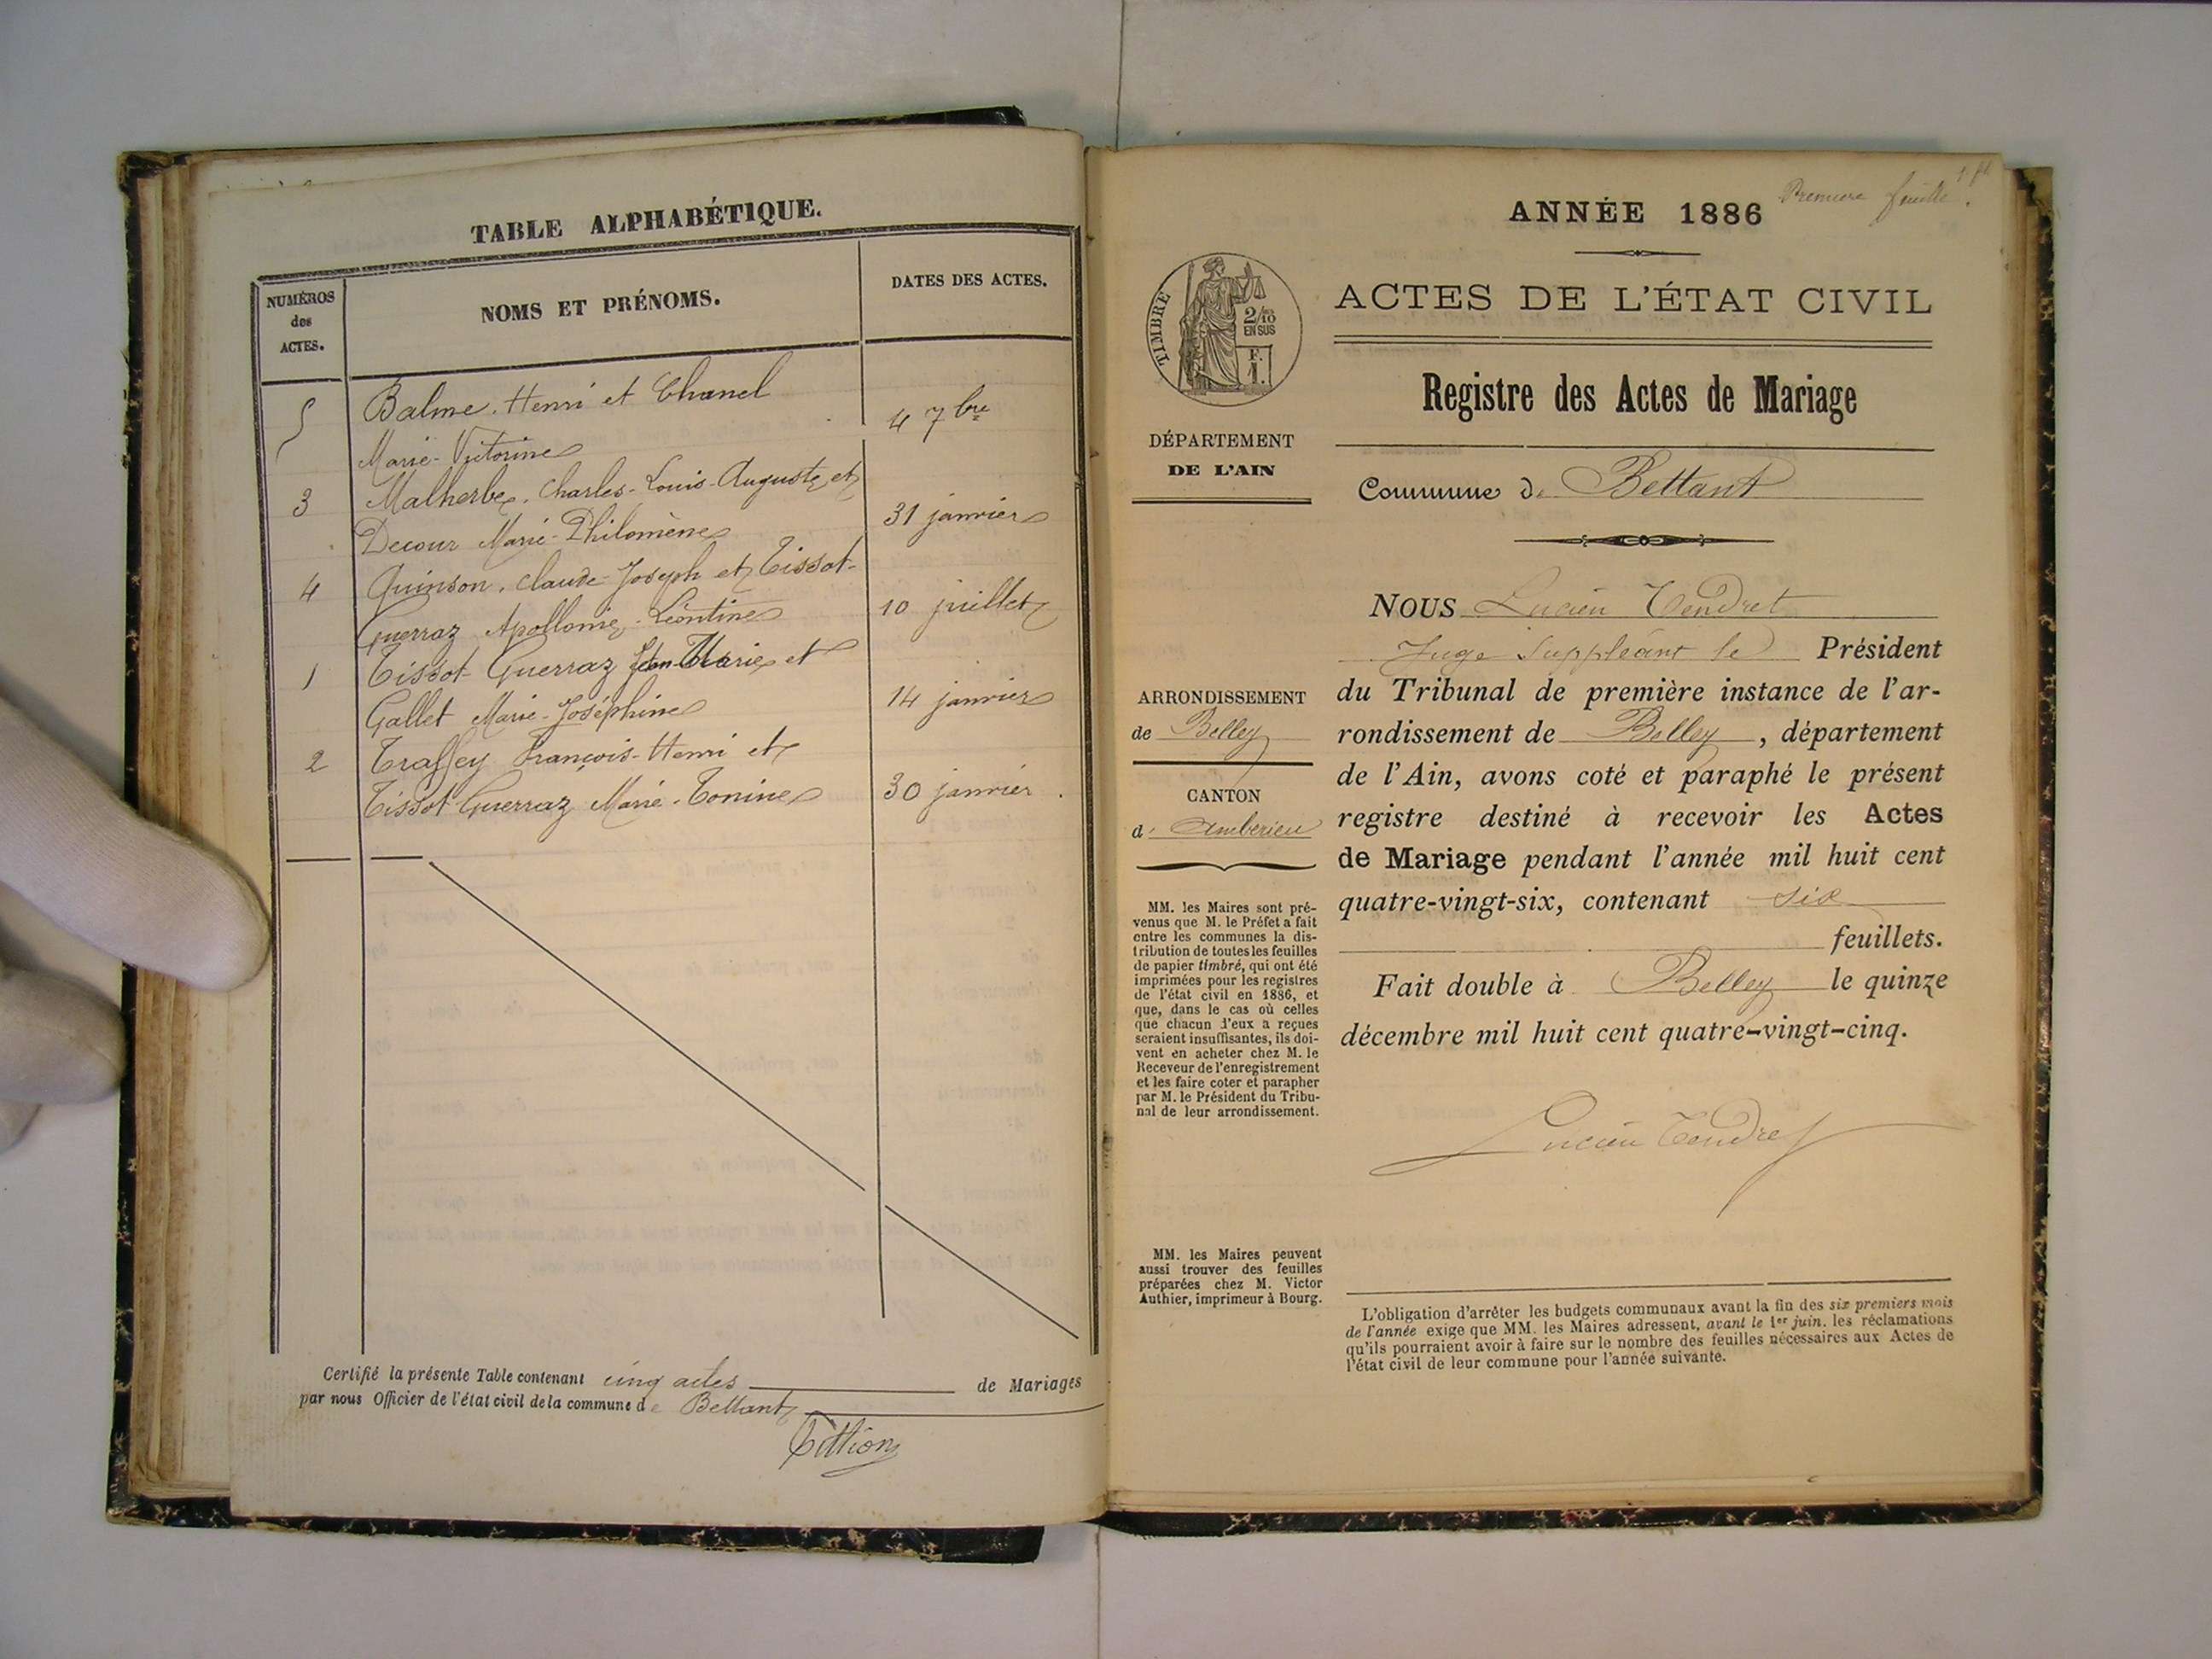 TABLE ALPHABÉTIQUE.
NUMÉROS
des
ACTES.
NOMS ET PRÉNOMS.
DATES DES ACTES.
5 Balme, Henri et Chanel
Marie-Victorine 4 7bre
3 Malherbe, Charles-Louis-Auguste et
Decour Marie-Philomène 31 janvier
4 Quinson, Claude-Joseph et Tissot-
Guerraz Apollonie-Léontine 10 juillet
1 Tissot-Guerraz Jean-Marie et
Gallet Marie-Joséphine 14 janvier
2 Traffey François-Henri et
Tissot-Guerraz Marie-Tonine 30 janvier.
Certifié la présente Table contenant cinq actes de Mariages
par nous Officier de l'état civil de la commune de Bettant
Première feuille
ANNÉE 1886
ACTES DE L'ÉTAT CIVIL
TIMBRE
2/10
EN SUS
F.
1.
Registre des Actes de Mariage
DÉPARTEMENT
DE L'AIN
Commune de Bettant
ARRONDISSEMENT
de Belley
CANTON
d'Amberieu
MM. les Maires sont pré-
venus que M. le Préfet a fait
entre les communes la dis-
tribution de toutes les feuilles
de papier timbré, qui ont été
imprimées pour les registres
de l'état civil en 1886, et
que, dans le cas où celles
que chacun d'eux a reçues
seraient insuffisantes, ils doi-
vent en acheter chez M. le
Receveur de l'enregistrement
et les faire coter et parapher
par M. le Président du Tribu-
nal de leur arrondissement.
MM. les Maires peuvent
aussi trouver des feuilles
préparées chez M. Victor
Authier, imprimeur à Bourg.
NOUS Lucien Tendret
Juge Suppléant le Président
du Tribunal de première instance de l'ar-
rondissement de Belley, département
de l'Ain, avons coté et paraphé le présent
registre destiné à recevoir les Actes
de Mariage pendant l'année mil huit cent
quatre-vingt-six, contenant six
feuillets.
Fait double à Belley le quinze
décembre mil huit cent quatre-vingt-cinq.
Lucien Tendret
L'obligation d'arrêter les budgets communaux avant la fin des six premiers mois
de l'année exige que MM. les Maires adressent, avant le 1er juin, les réclamations
qu'ils pourraient avoir à faire sur le nombre des feuilles nécessaires aux Actes de
l'état civil de leur commune pour l'année suivante.